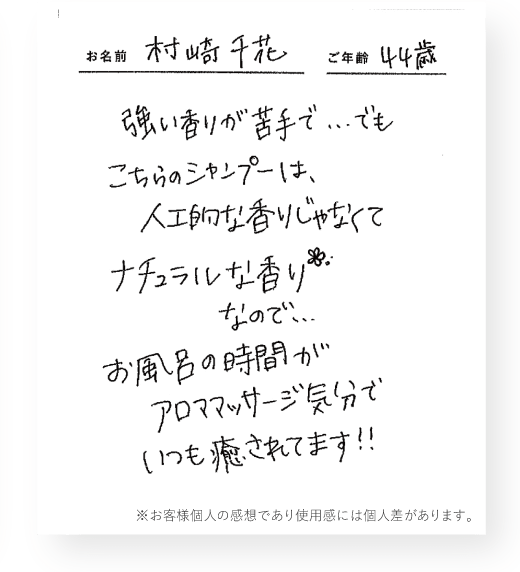 お名前 村崎千花 ご年齢 44歳
強い香りが苦手で…でも
こちらのシャンプーは、
人工的な香りじゃなくて
ナチュラルな香り
なので…
お風呂の時間が
アロママッサージ気分で
いつも癒されてます!!
※お客様個人の感想であり使用感には個人差があります。